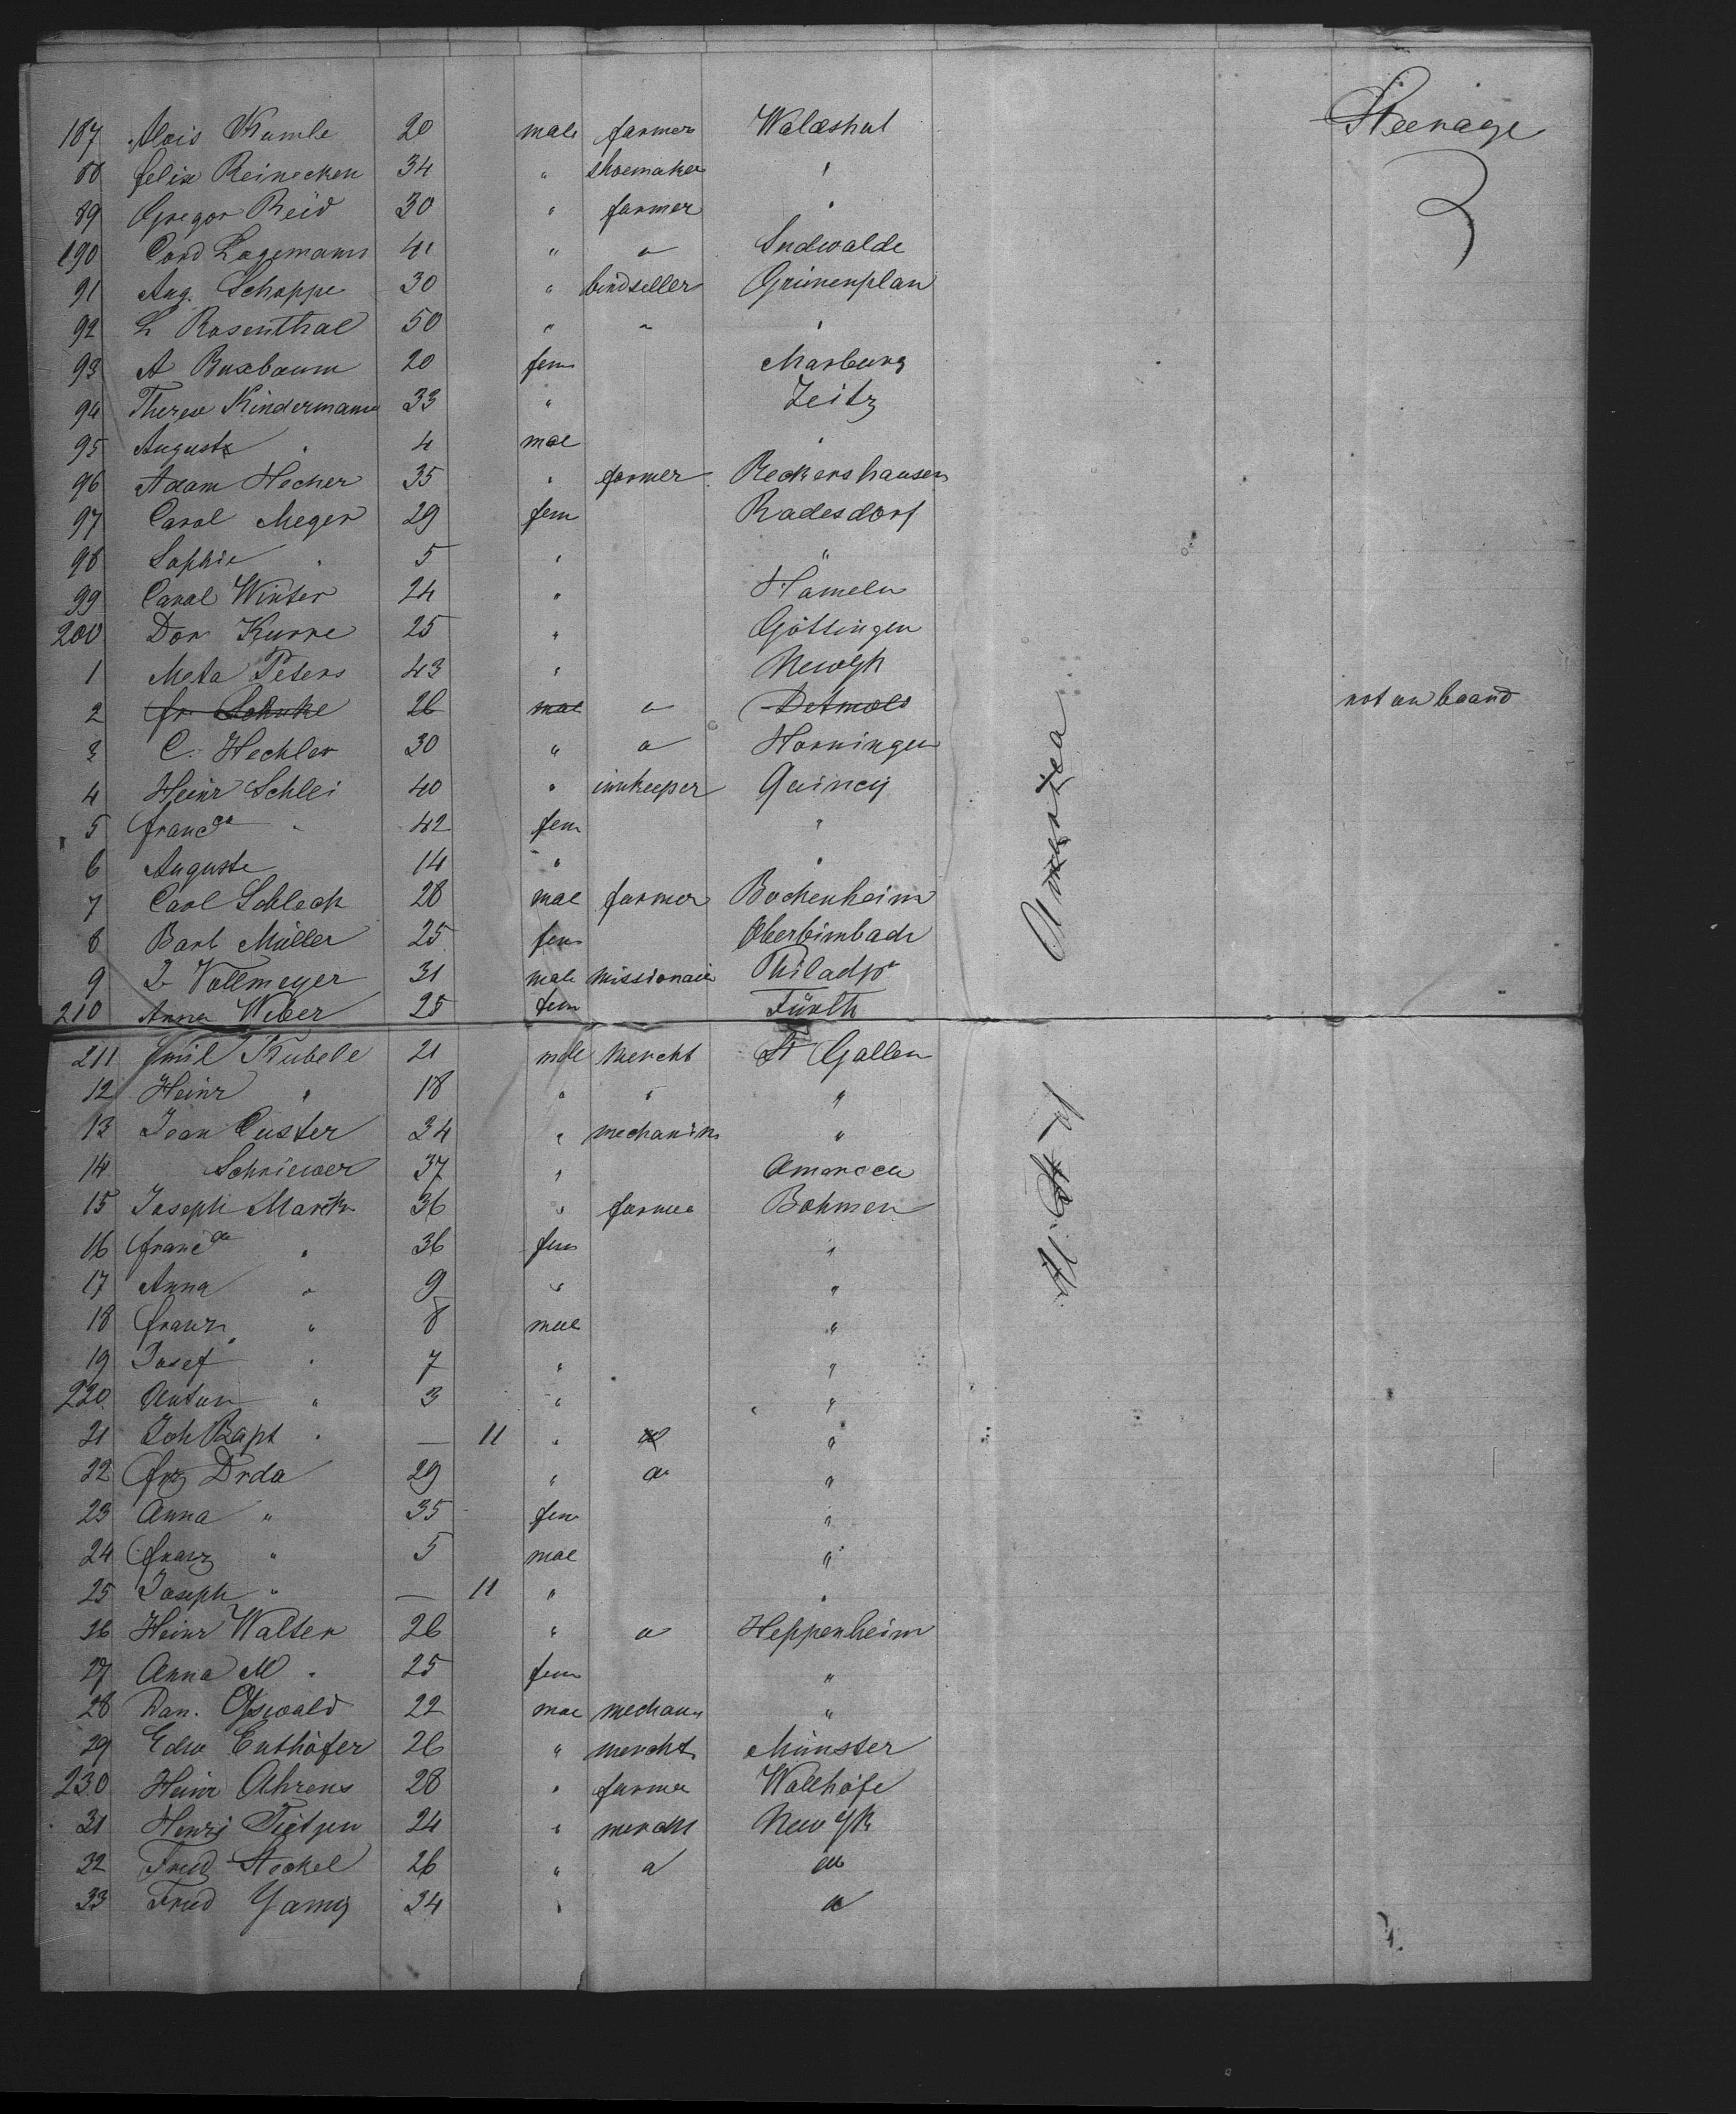 Steerage
187 Alois Kumle 20 male farmer Waldshut
88 Felix Reinecken 34 " shoemaker "
89 Gregor Reid 30 " farmer "
190 Cord Lagemann 41 " " Sudwalde
91 Aug. Schoppe 30 " birdseller Grünenplan
92 L Rosenthal 50 " " "
93 A Buxbaum 20 fem Marburg
94 Therese Kindermann 33 " Zeitz
95 August " 4 mal "
96 Adam Hecher 35 " farmer Reckershausen
97 Carol Meger 29 fem Radesdorf
98 Sophie " 5 " "
99 Carol Winter 24 " Hameln
200 Dor Kurre 25 " Göttingen
1 Meta Peters 43 " NewYk
2 Fr Schuke 26 mal " Detmold not on board
3 C. Hechler 30 " " Horningen
4 Heinr Schlei 40 " innkeeper Quincy
5 Francca " 42 fem "
6 Auguste 14 " "
7 Carl Schleck 28 mal farmer Bockenheim
8 Barb Müller 25 fem Oberbimbach
9 L Vollmeyer 31 male missionair Philadpa
210 Anna Weber 25 fem Fürth
211 Emil Kubele 21 male mercht St Gallen
12 Heinr " 18 " " "
13 Jean Custer 34 " mechanik "
14 Schriewer 37 "
15 Joseph Marek 36 " farmer Bohmen
16 Francca " 36 fem "
17 Anna " 9 " "
18 Franz " 8 mal "
19 Josef " 7 " "
220 Anton " 3 " "
21 Joh Bapt " — 11 " "
22 Frz Drda 29 " " "
23 Anna " 35 fem "
24 Franz " 5 mal "
25 Joseph " — 11 " "
26 Heinr Walter 26 " " Heppenheim
27 Anna M " 25 fem "
28 Dan. Osswald 22 mal mechan "
29 Edw Enthöfer 26 " mercht Münster
230 Heinr Ahrens 28 " farmer Wallhöfe
31 Henry Tietjen 24 " mercht New Yk
32 Fred Stockel 26 " " "
33 Fred 34 " "
America